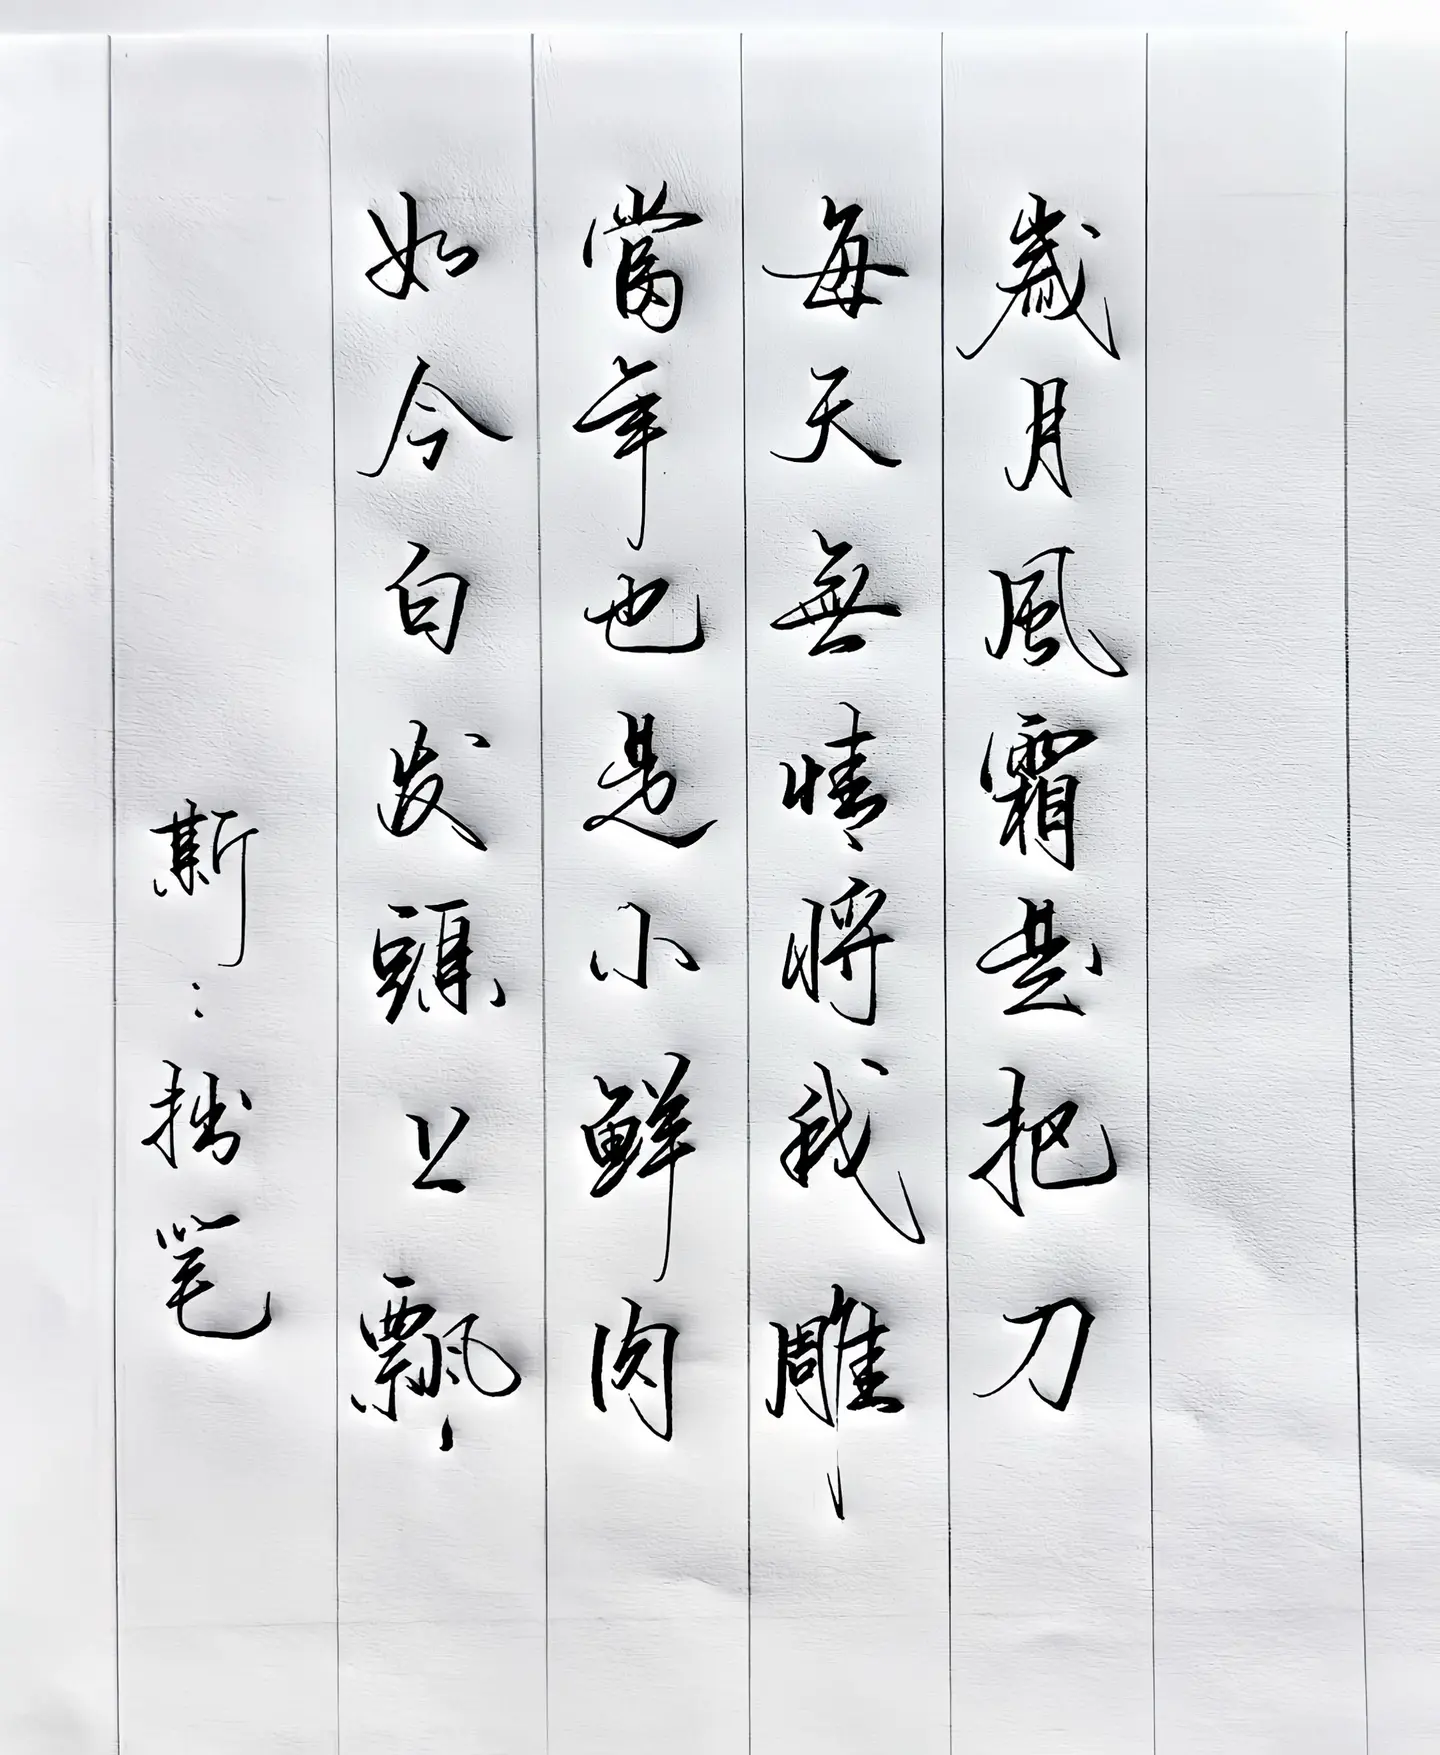 歲月風霜是把刀
每天無情將我雕
當年也是小鮮肉
如今白发頭上飄
斯：拙笔